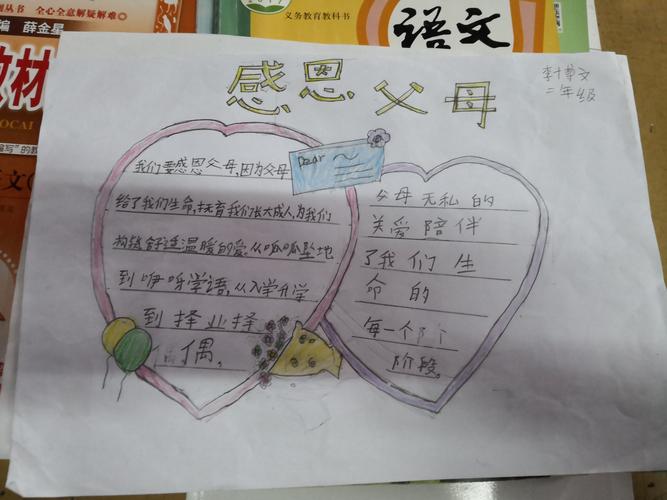 丛书 全心全意解疑解难
编 薛金星
教材
义务教育教科书
语文
感恩父母
二年级
Dear
我们要感恩父母,因为父母
给了我们生命,抚育我们长大成人,为我们
构筑舒适温暖的爱.从呱呱坠地
到咿呀学语,从入学升学
到择业择
偶,
父母无私的
关爱陪伴
了我们生
命的
每一个
阶段。